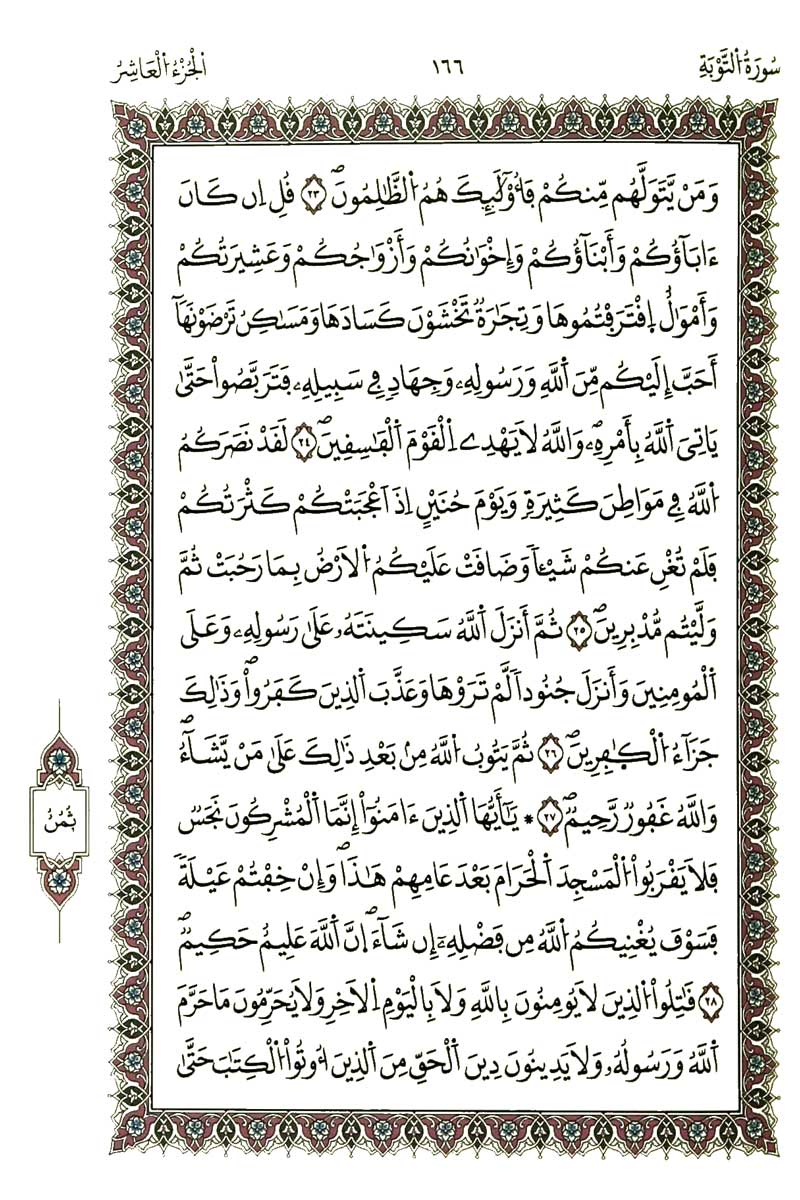 سُورَةُ اُ۬لتَّوْبَةِ
١٦٦
اَ۬لْجُزْءُ اُ۬لْعَاشِرُ
وَمَنْ يَّتَوَلَّهُم مِّنكُمْ فَأُوْلَٰٓئِكَ هُمُ اُ۬لظَّٰلِمُونَۖ ٢٣ قُلِ اِن كَانَ
ءَابَآؤُكُمْ وَأَبْنَآؤُكُمْ وَإِخْوَٰنُكُمْ وَأَزْوَٰجُكُمْ وَعَشِيرَتُكُمْ
وَأَمْوَٰلٌ اِ۪قْتَرَفْتُمُوهَا وَتِجَٰرَةٌ تَخْشَوْنَ كَسَادَهَا وَمَسَٰكِنُ تَرْضَوْنَهَآ
أَحَبَّ إِلَيْكُم مِّنَ اَ۬للَّهِ وَرَسُولِهِۦ وَجِهَادٍ فِے سَبِيلِهِۦ فَتَرَبَّصُواْ حَتَّىٰ
يَاتِيَ اَ۬للَّهُ بِأَمْرِهِۦۖ وَاللَّهُ لَا يَهْدِے اِ۬لْقَوْمَ اَ۬لْفَٰسِقِينَۖ ٢٤ لَقَدْ نَصَرَكُمُ
اُ۬للَّهُ فِے مَوَاطِنَ كَثِيرَةٖ وَيَوْمَ حُنَيْنٍ اِذَ اَعْجَبَتْكُمْ كَثْرَتُكُمْ
فَلَمْ تُغْنِ عَنكُمْ شَيْـٔاٗ وَضَاقَتْ عَلَيْكُمُ اُ۬لَارْضُ بِمَا رَحُبَتْ ثُمَّ
وَلَّيْتُم مُّدْبِرِينَۖ ٢٥ ثُمَّ أَنزَلَ اَ۬للَّهُ سَكِينَتَهُۥ عَلَىٰ رَسُولِهِۦ وَعَلَى
اَ۬لْمُومِنِينَ وَأَنزَلَ جُنُوداٗ لَّمْ تَرَوْهَا وَعَذَّبَ اَ۬لذِينَ كَفَرُواْۖ وَذَٰلِكَ
جَزَآءُ اُ۬لْكٰ۪فِرِينَۖ ٢٦ ثُمَّ يَتُوبُ اُ۬للَّهُ مِنۢ بَعْدِ ذَٰلِكَ عَلَىٰ مَنْ يَّشَآءُۖ
وَاللَّهُ غَفُورٞ رَّحِيمٞۖ ٢٧ ۞ يَٰٓأَيُّهَا اَ۬لذِينَ ءَامَنُوٓاْ إِنَّمَا اَ۬لْمُشْرِكُونَ نَجَسٞ
فَلَا يَقْرَبُواْ اُ۬لْمَسْجِدَ اَ۬لْحَرَامَ بَعْدَ عَامِهِمْ هَٰذَاۖ وَإِنْ خِفْتُمْ عَيْلَةٗ
فَسَوْفَ يُغْنِيكُمُ اُ۬للَّهُ مِن فَضْلِهِۦٓ إِن شَآءَۖ اِنَّ اَ۬للَّهَ عَلِيمٌ حَكِيمٞۖ
٢٨ قَٰتِلُواْ اُ۬لذِينَ لَا يُومِنُونَ بِاللَّهِ وَلَا بِالْيَوْمِ اِ۬لَاخِرِ وَلَا يُحَرِّمُونَ مَا حَرَّمَ
اَ۬للَّهُ وَرَسُولُهُۥ وَلَا يَدِينُونَ دِينَ اَ۬لْحَقِّ مِنَ اَ۬لذِينَ أُوتُواْ اُ۬لْكِتَٰبَ حَتَّىٰ
ثُمُنُ